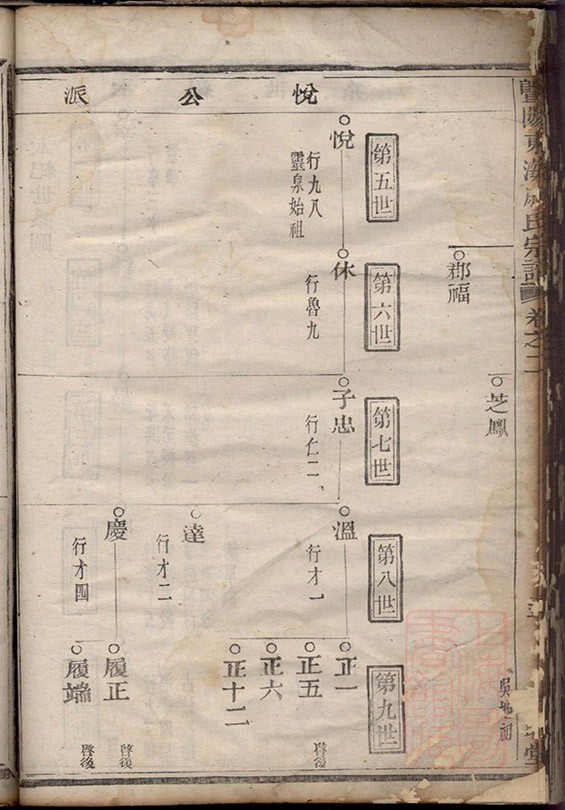 宗譜
卷之二
芝鳳
郡福
吳地祖
悅公派
第五世
悅
行九八
靈泉始祖
第六世
休
行魯九
第七世
子忠
行仁二
第八世
溫
行才一
達
行才二
慶
行才四
第九世
正一
正五
啓後
正六
正十二
履正
啓後
履端
啓後